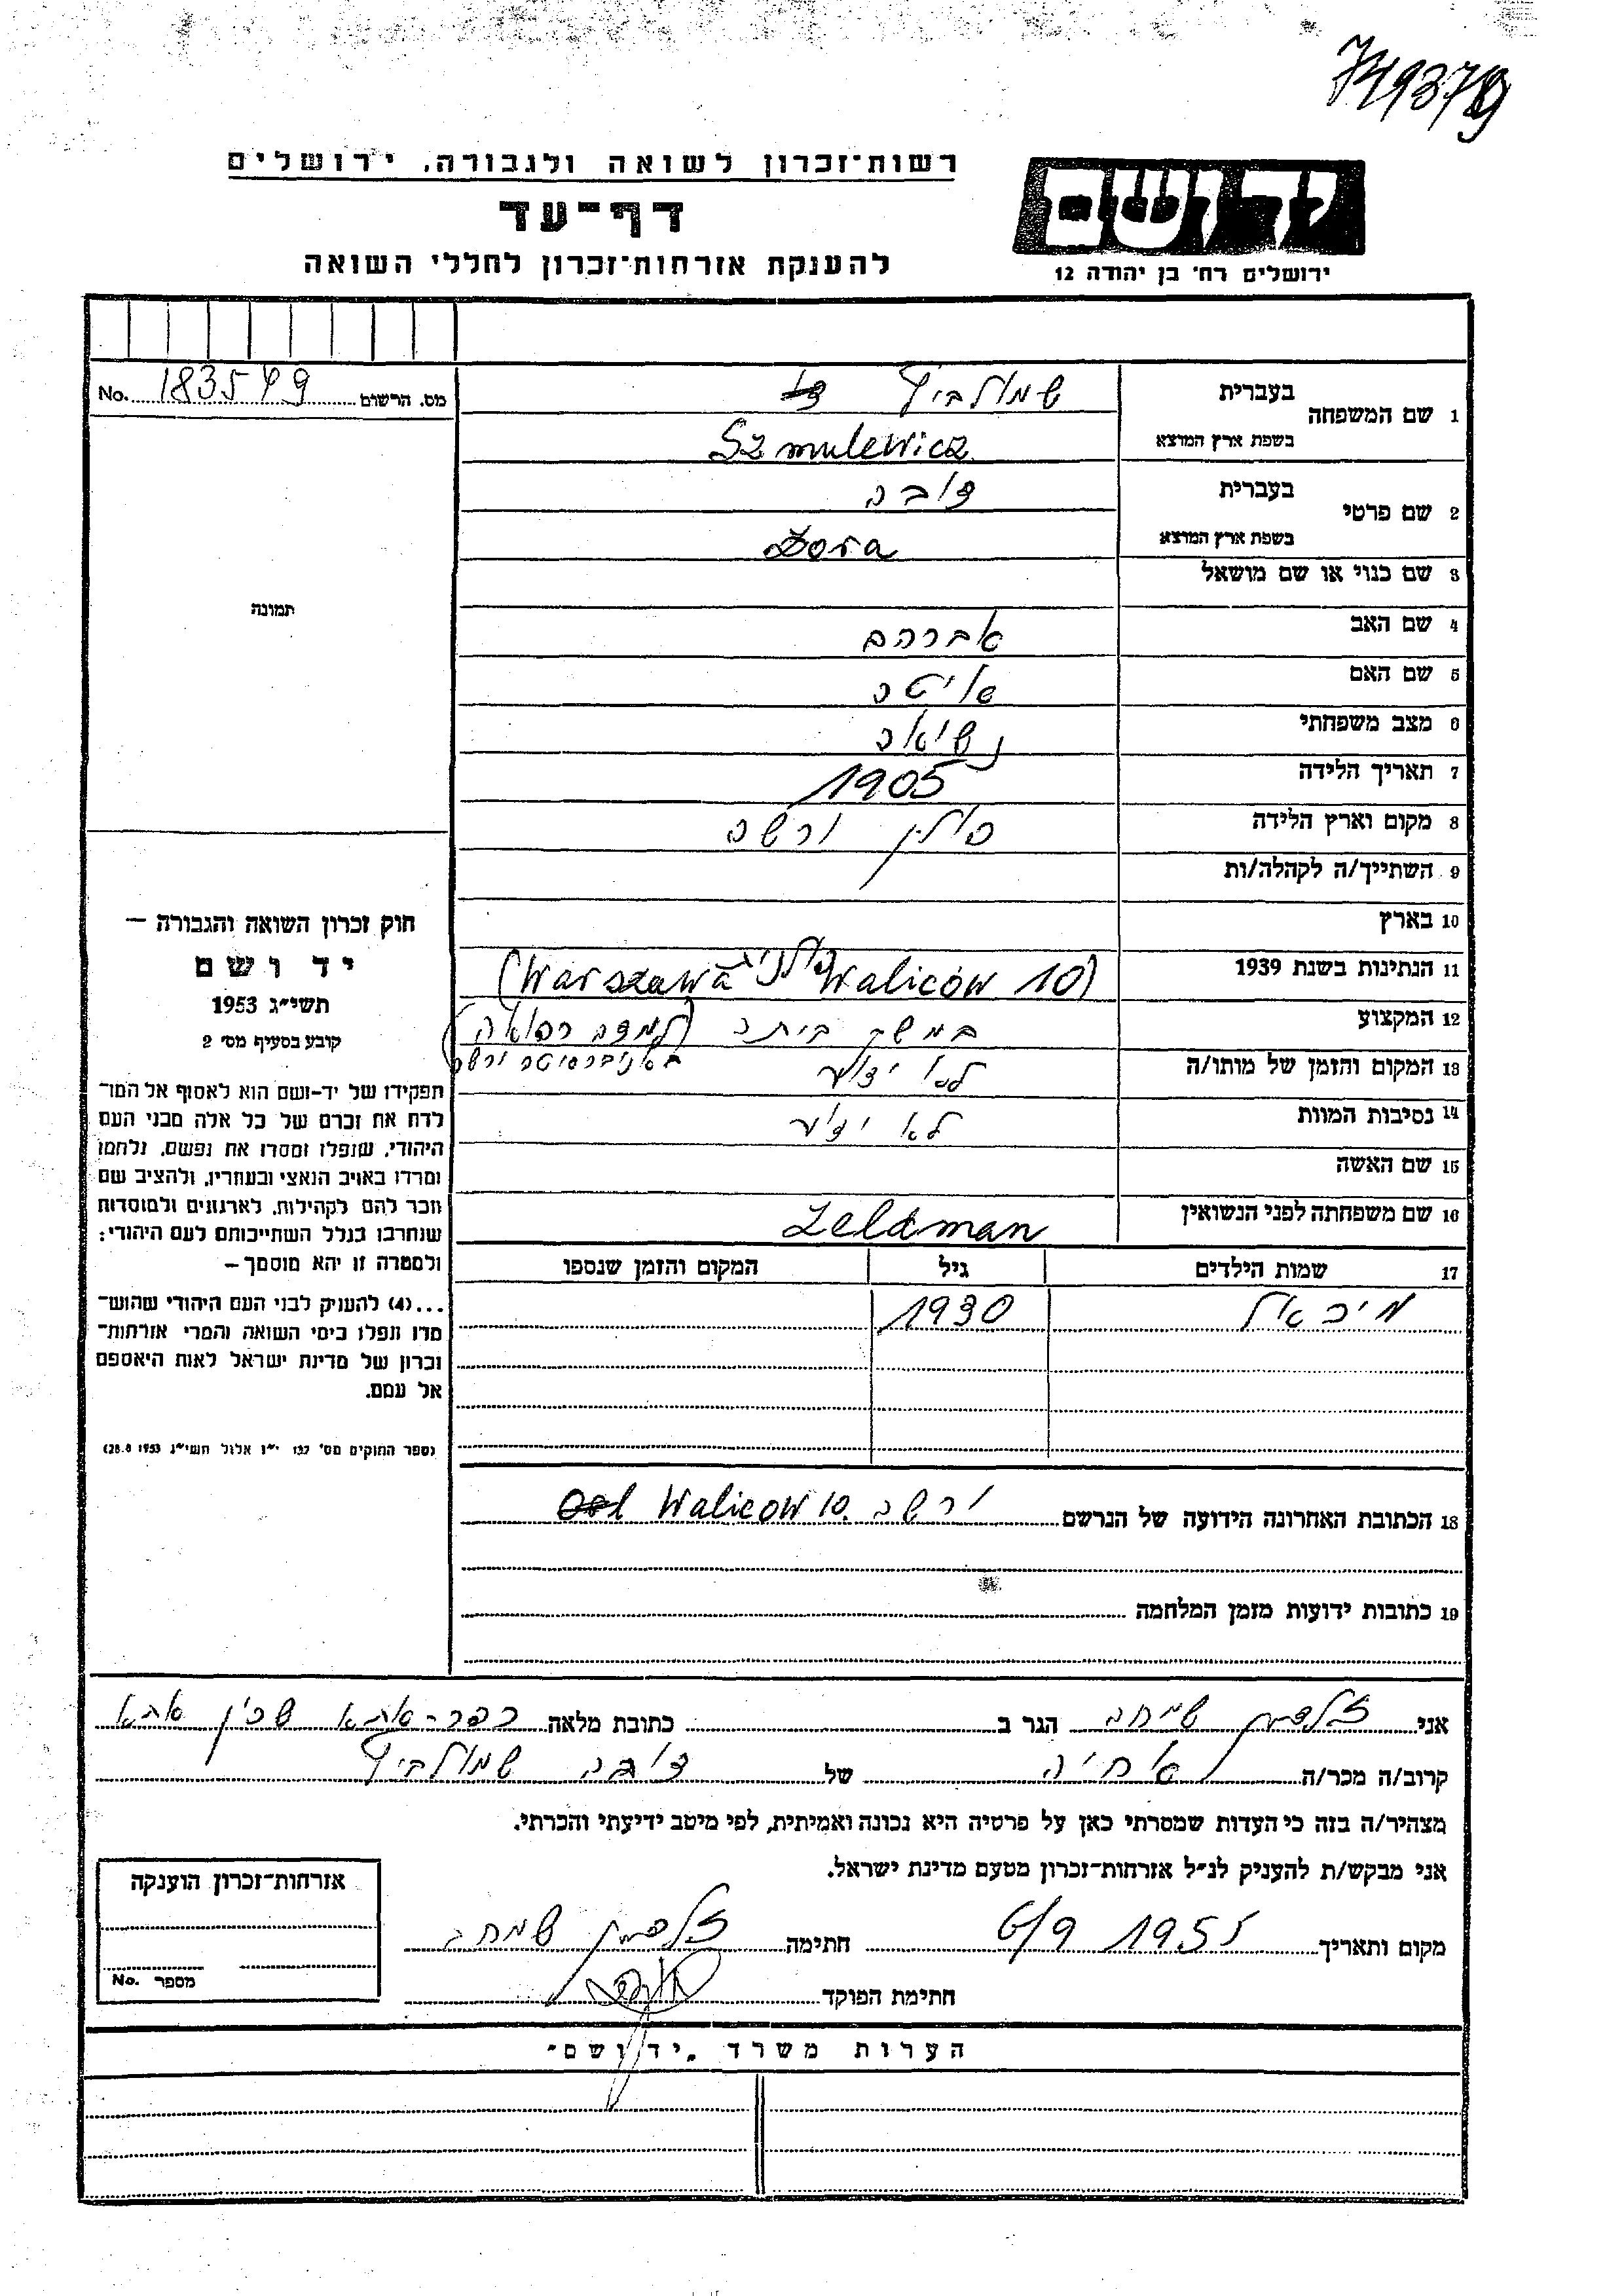 רשות־זכרון לשואה ולגבורה, ירושלים
דף־עד
להענקת אזרחות־זכרון לחללי השואה
יד ושם
ירושלים רח׳ בן יהודה 12
מס. הרשום 183549 No.
תמונה
1 שם המשפחה
בעברית שמולביץ
בשפת ארץ המוצא Szmulewicz
2 שם פרטי
בעברית דובה
בשפת ארץ המוצא Dora
3 שם כנוי או שם מושאל
4 שם האב אברהם
5 שם האם
6 מצב משפחתי נשואה
7 תאריך הלידה 1905
8 מקום וארץ הלידה פולין ורשה
9 השתייך/ה לקהלה/ות
10 בארץ
11 הנתינות בשנת 1939 (Warszawa Waliców 10)
12 המקצוע במשק ביתה (למדה רפואה
באוניברסיטה ורשה)
13 המקום והזמן של מותו/ה לא ידוע
14 נסיבות המוות לא ידוע
15 שם האשה
16 שם משפחתה לפני הנשואין Zeldman
17 שמות הילדים גיל המקום והזמן שנספו
מיכאל 1930
18 הכתובת האחרונה הידועה של הנרשם ורשה Walicow 10.
19 כתובות ידועות מזמן המלחמה
חוק זכרון השואה והגבורה –
יד ושם
תשי״ג 1953
קובע בסעיף מס׳ 2
תפקידו של יד-ושם הוא לאסוף אל המו־
לדת את זכרם של כל אלה מבני העם
היהודי, שנפלו ומסרו את נפשם, נלחמו
ומרדו באויב הנאצי ובעוזריו, ולהציב שם
וזכר להם לקהילות, לארגונים ולמוסדות
שנחרבו בגלל השתייכותם לעם היהודי;
ולמטרה זו יהא מוסמך –
...(4) להעניק לבני העם היהודי שהוש־
מדו ונפלו בימי השואה והמרי אזרחות־
זכרון של מדינת ישראל לאות היאספם
אל עמם.
(ספר החוקים מס׳ 132 י״ז אלול תשי״ג 28.8.1953)
אני זלדמן שמחה הגר ב כתובת מלאה כפר-אתא שכון אתא
קרוב/ה מכר/ה אחיה של דובה שמולביץ
מצהיר/ה בזה כי העדות שמסרתי כאן על פרטיה היא נכונה ואמיתית, לפי מיטב ידיעתי והכרתי.
אני מבקש/ת להעניק לנ״ל אזרחות־זכרון מטעם מדינת ישראל.
מקום ותאריך 6/9 1955 חתימה זלדמן שמחה
חתימת הפוקד
אזרחות־זכרון הוענקה
מספר No.
הערות משרד „יד ושם״